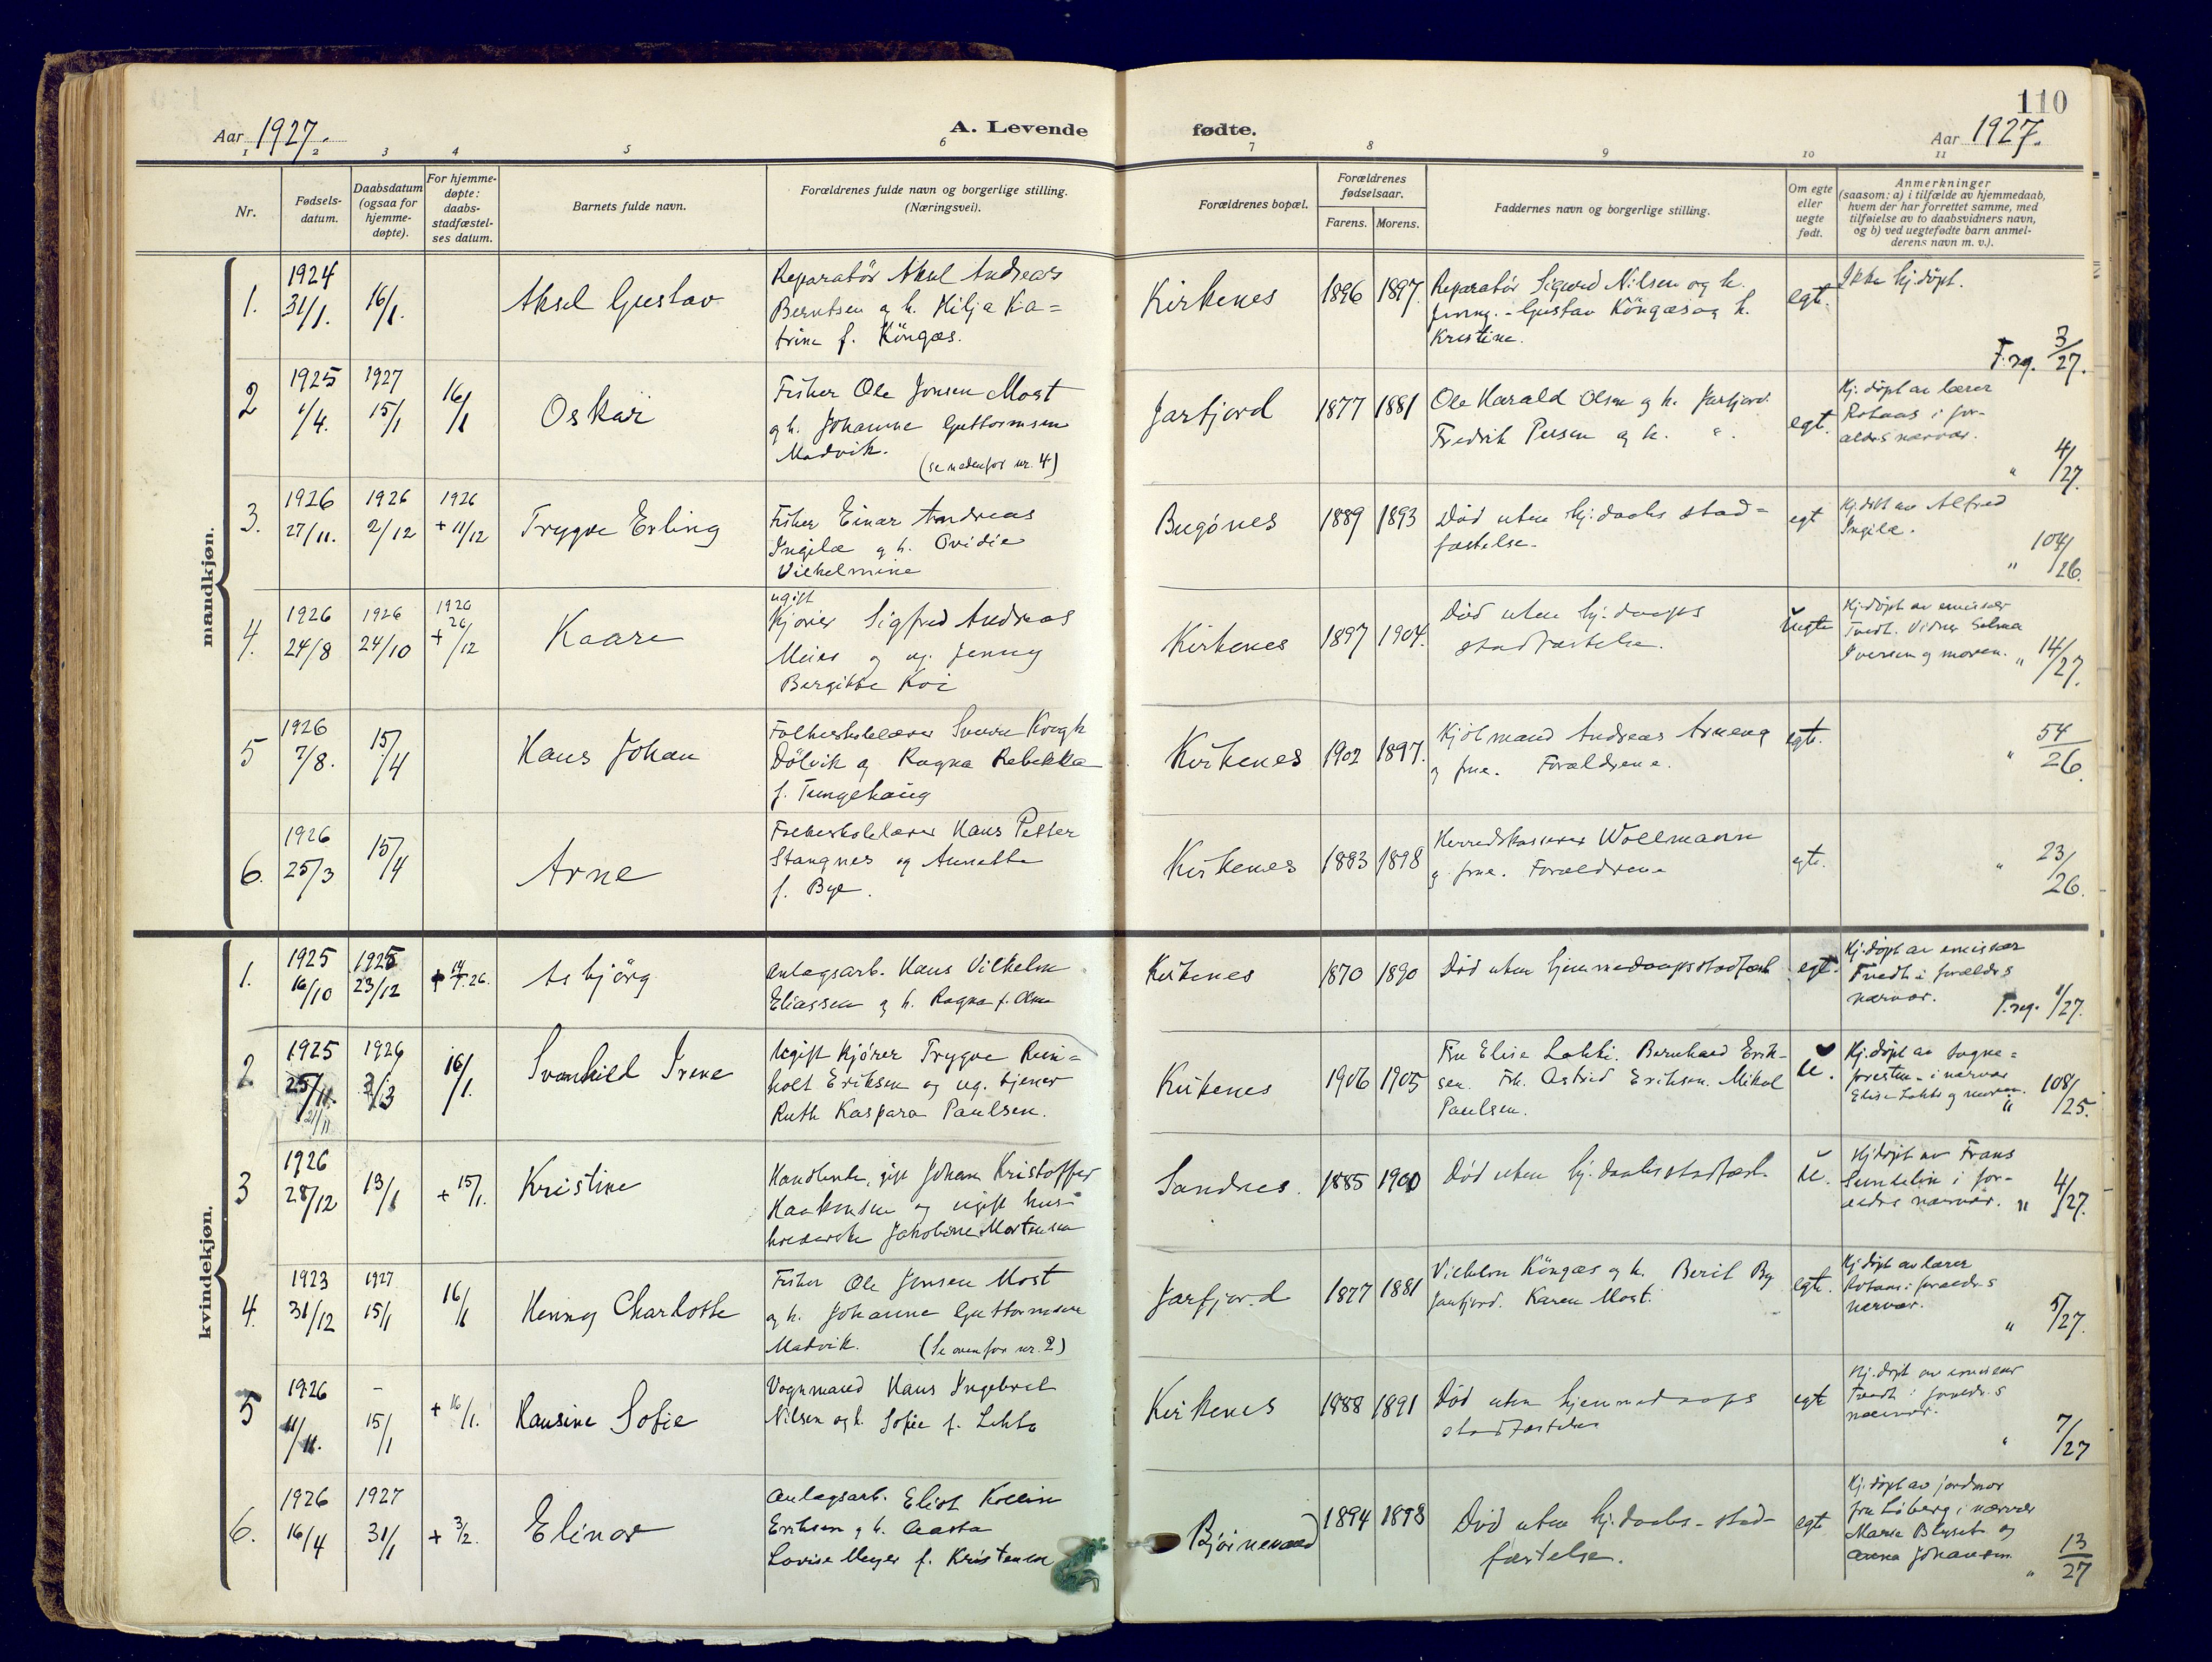 110
Aar 1927.
A. Levende fødte.
Aar 1927.
1 2 3 4 5 6 7 8 9 10 11
Nr.
Fødsels-
datum.
Daabsdatum
(ogsaa for
hjemme-
døpte).
For hjemme-
døpte:
daabs-
stadfæstel-
ses datum.
Barnets fulde navn.
Forældrenes fulde navn og borgerlige stilling.
(Næringsvei).
Forældrenes bopæl.
Forældrenes
fødselsaar.
Farens. Morens.
Faddernes navn og borgerlige stilling.
Om egte
eller
uegte
født.
Anmerkninger
(saasom: a) i tilfælde av hjemmedaab,
hvem der har forrettet samme, med
tilføielse av to daabsvidners navn,
og b) ved uegtefødte barn anmel-
derens navn m. v.).
mandkjøn.
1.
1924
31/1.
16/1.
Aksel Gustav
Reparatör Aksel Andreas
Berntsen og h. Hilja Ka=
trine f. Köngäs.
Kirkenes
1896 1897.
Reparatör Sigurd Nilsen og h.
Jenny. - Gustav Köngäs og h.
Kristine.
egt.
Ikke hj.døpt.
F.reg. 3/27.
2
1925
1/4.
1927
15/1
16/1
Oskar
Fisker Ole Jonsen Most
og h. Johanne Guttormsen
Madvik.
(se nedenfor nr. 4)
Jarfjord
1877 1881
Ole Harald Olsen og h. Jarfjord.
Fredrik Persen og h. ".
egt.
Hj. døpt av lærer
Rotaas i for-
ældrs nærvær.
" 4/27.
3.
1926
27/11.
1926
2/12
1926
+ 11/12
Trygve Erling
Fisker Einar Andreas
Ingilæ og h. Ovidie
Vilhelmine
Bugönes
1889 1893
Död uten hj.daabs stad=
fæstelse.
egt
Hj.døbt av Alfred
Ingilæ.
" 104/26.
4.
1926
24/8
1926
24/10
1926
+ 26/12
Kaare
ugift
Kjører Sigfred Andreas
Meier og ug. Jenny
Bergitte Koi
Kirkenes
1897 1904.
Död uten hj.daaps
stadfæstelse.
uegte
Hj.døpt av emissær
Tvedt. Vidner Selma
Iversen og moren.
" 14/27.
5
1926
7/8.
15/4
Hans Johan
Folkeskolelærer Sverre Krogh
Dölvik og Ragna Rebekka
f. Tungehaug
Kirkenes
1902 1897.
Kjölmand Andreas Arneng
og frue. Forældrene.
egte.
" 54/26.
6.
1926
25/3
15/4
Arne
Folkeskolelærer Hans Petter
Stangnes og Annette
f. Bye.
Kirkenes
1893 1898
Herredskasserer Wollmann
og frue. Forældrene
egte.
" 23/26.
kvindekjøn.
1.
1925
16/10
1925
23/12
+ 14/7.26.
Asbjörg
Anlegsarb. Hans Vilhelm
Eliassen og h. Ragna f. Olsen
Kirkenes
1870 1890
Död uten hjemmedaapsstadfæst
egt.
Hj.døpt av emissær
Tvedt i forældrs
nærvær.
F.reg. 1/27.
2
1925
25/11.
21/11
1926
3/3
16/1.
Svanhild Irene
Ugift kjører Trygve Rein=
holt Eriksen og ug. tjener
Ruth Kaspara Paulsen.
Kirkenes
1906 1905
Fru Elise Lakki. Bernhard Erik-
sen. Frk. Astrid Eriksen. Mikal
Paulsen.
U.
Hj.døpt av sogne=
presten - i nærvær
Elise Lakki og moren.
" 108/25.
3
1926
28/12
13/1
+ 15/1.
Kristine
Handlende, gift Johan Kristoffer
Haakensen og ugift hus=
holderske Jakobine Mortensen
Sandnes.
1885 1900
Död uten hj.daabsstadfæst.
U.
Hj.døpt av Frans
Sundelin i for-
ældrs nærvær.
" 4/27.
4.
1923
31/12
1927
15/1
16/1
Henny Charlotte
Fisker Ole Jonsen Most
og h. Johanne Guttormsen
Madvik. (Se ovenfor nr. 2)
Jarfjord
1877 1881
Vilhelm Köngäs og h. Berit By
Jarfjord. Karen Most.
egte.
Hj.døpt av lærer
Rotaas i forældrs
nærvær.
" 5/27.
5
1926
11/11.
-
15/1
+ 16/1.
Hansine Sofie
Vognmand Hans Ingebret
Nilsen og h. Sofie f. Lehto
Kirkenes
1888 1891
Död uten hjemmedaaps
stadfæstelse
egte
Hj.døpt av emissær
Tvedt i forældrs
nærvær.
" 7/27
6.
1926
16/4
1927
31/1
+ 3/2.
Elinor
Anlegsarb. Eliot Kollin
Eriksen og h. Aasta
Lovise Meyer f. Kristensen
Bjørnevand
1894 1898
Död uten hj.daabs-stad-
fæstelse.
egte.
Hj.døpt av jordmor
fru Löberg i nærvær
Marie Blyset og
Anna Johansen.
" 13/27